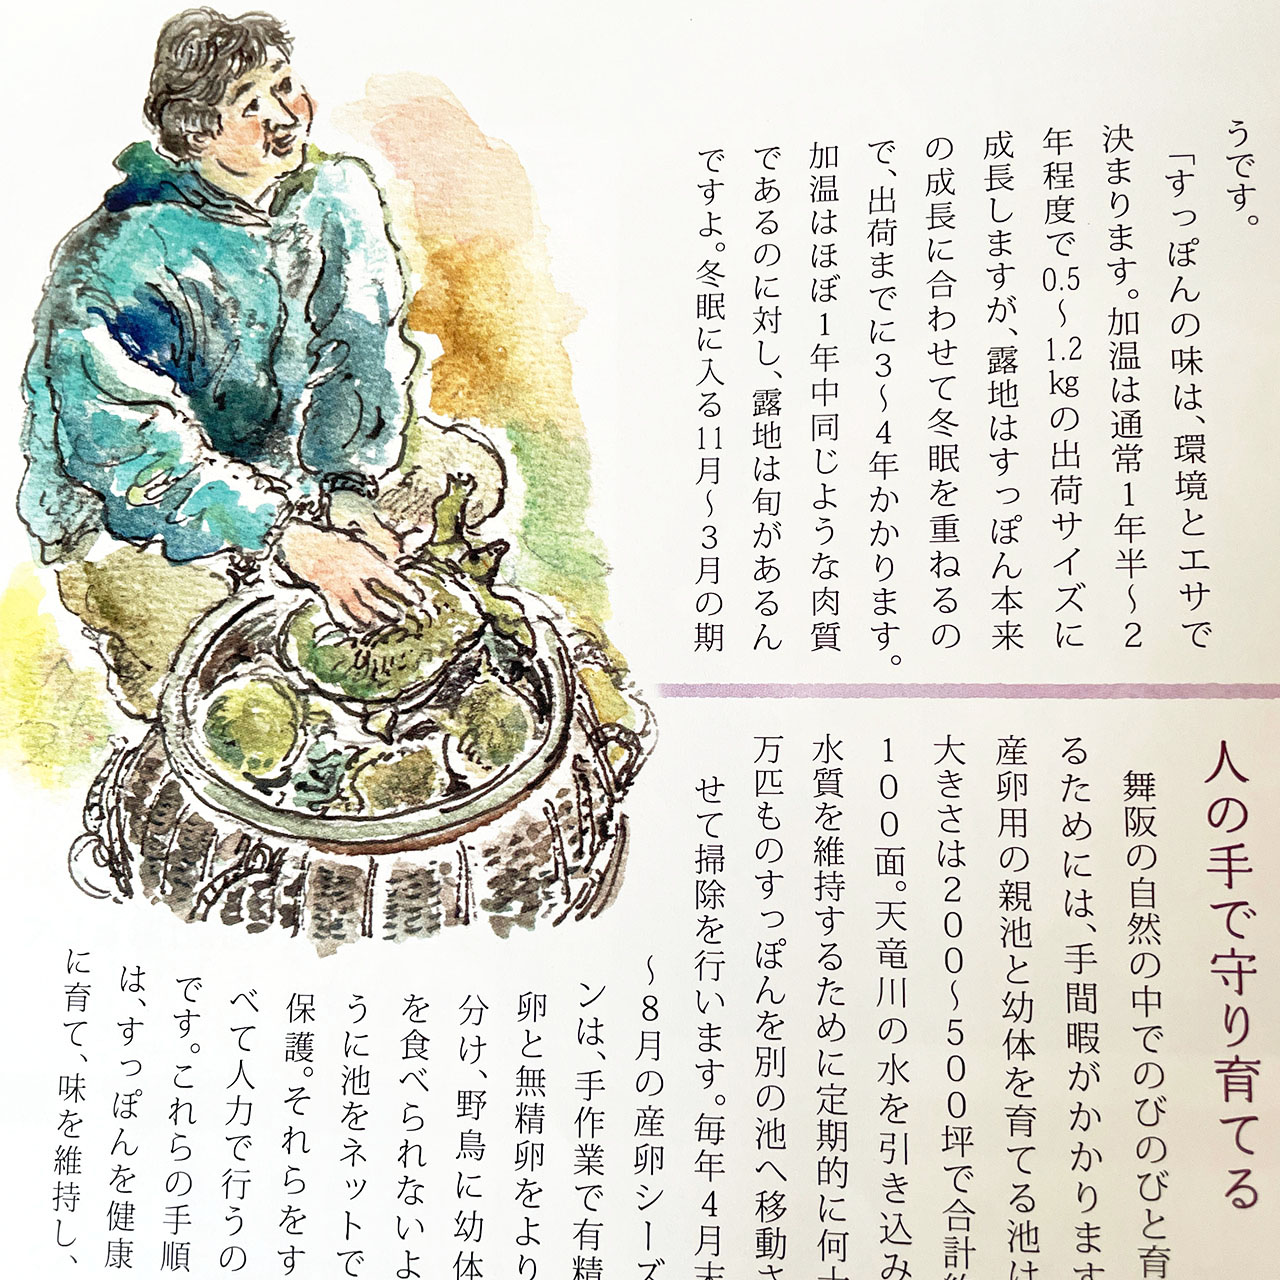 うです。
「すっぽんの味は、環境とエサで
決まります。加温は通常1年半〜2
年程度で0.5〜1.2kgの出荷サイズに
成長しますが、露地はすっぽん本来
の成長に合わせて冬眠を重ねるの
で、出荷までに3〜4年かかります。
加温はほぼ1年中同じような肉質
であるのに対し、露地は旬があるん
ですよ。冬眠に入る11月〜3月の期
人の手で守り育てる
舞阪の自然の中でのびのびと育
るためには、手間暇がかかります
産卵用の親池と幼体を育てる池は
大きさは200〜500坪で合計約
100面。天竜川の水を引き込み
水質を維持するために定期的に何十
万匹ものすっぽんを別の池へ移動さ
せて掃除を行います。毎年4月末
〜8月の産卵シーズ
ンは、手作業で有精
卵と無精卵をより
分け、野鳥に幼体
を食べられないよ
うに池をネットで
保護。それらをす
べて人力で行うの
です。これらの手順
は、すっぽんを健康
に育て、味を維持し、